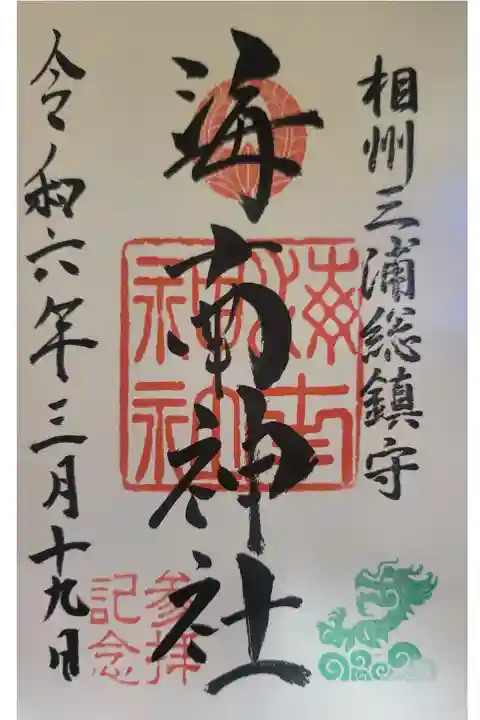 相州三浦総鎮守
海南神社
海南
神社
参拝
記念
令和六年三月十九日